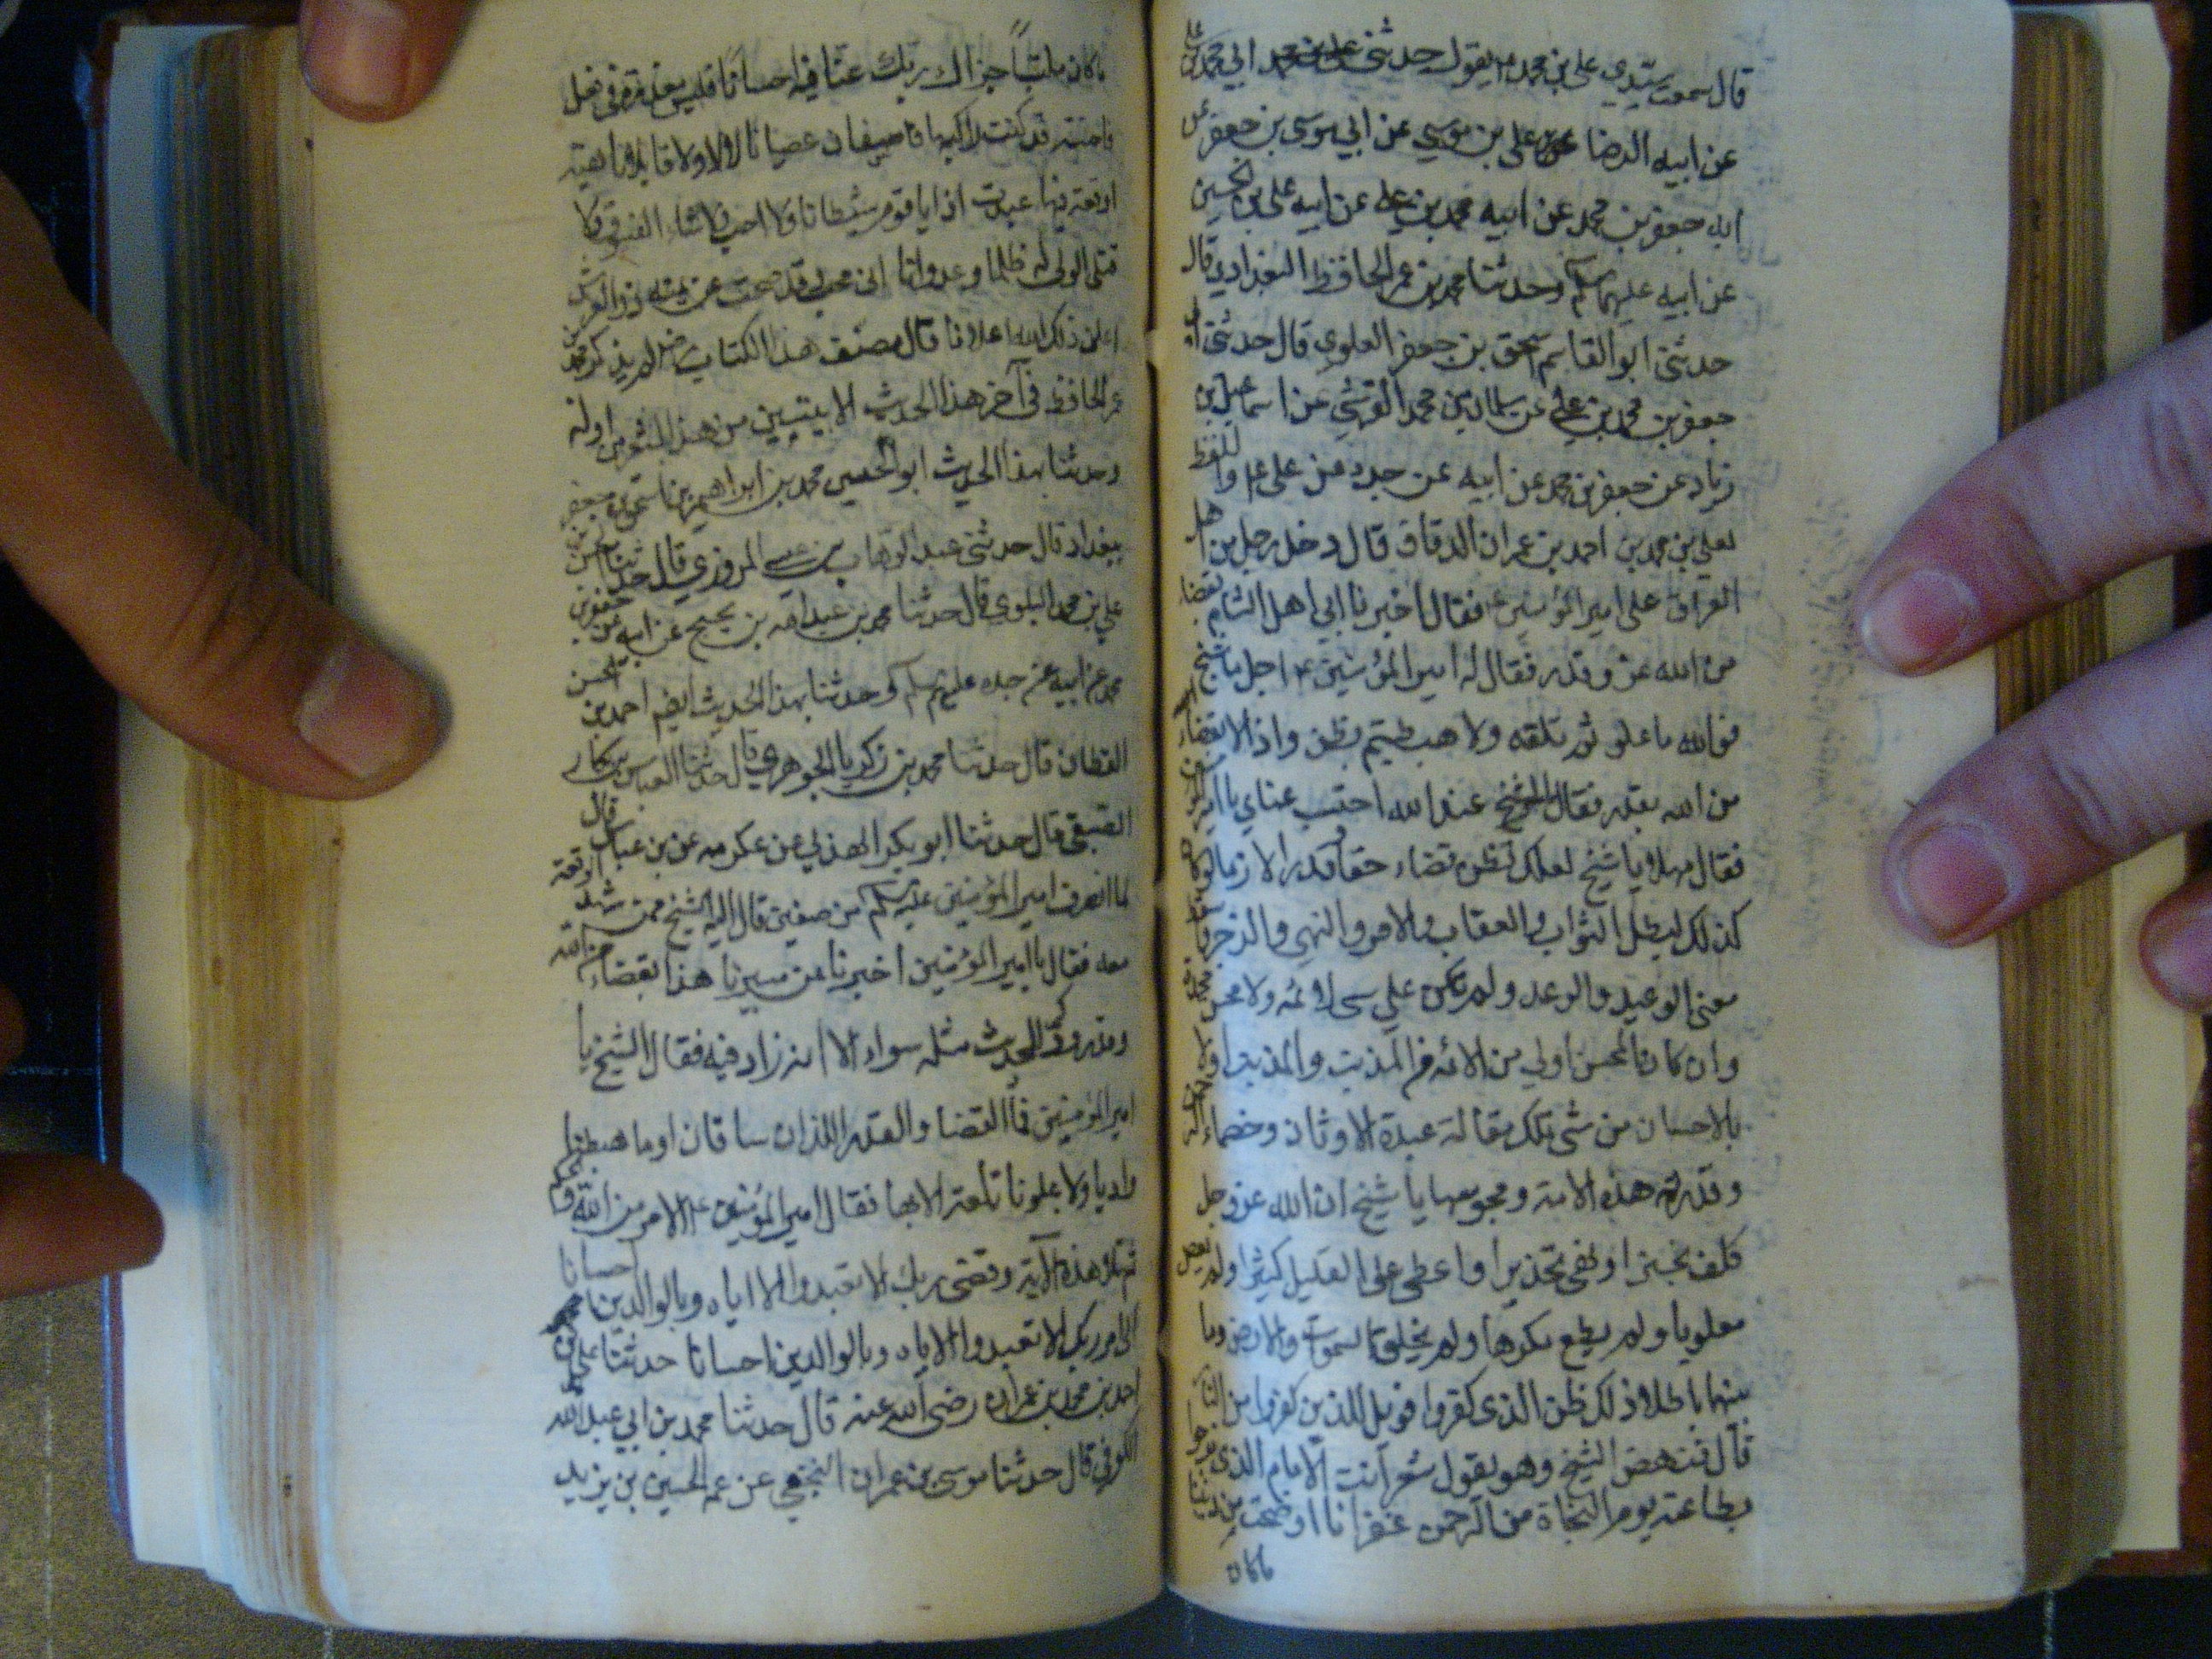 قال سمعت سيدي علي بن محمد يقول حدثني أبي محمد بن علي
عن ابيه الرضا علي بن موسى عن ابي موسى بن جعفر عن
ابيه جعفر بن محمد عن ابيه محمد بن علي عن ابيه علي بن الحسين
عن ابيه عليهم السلم وحدثنا محمد بن عمر الحافظ البغدادي قال
حدثني ابو القاسم اسحق بن جعفر العلوي قال حدثني ابي
جعفر بن محمد بن علي عن سلمان بن محمد القرشي عن اسماعيل بن
زياد عن جعفر بن محمد عن ابيه عن جده عن علي ع واللفظ
لعلي بن محمد بن احمد بن عمران الدقاق قال دخل رجل من اهل
العراق على امير المؤمنين ع فقال اخبرنا اهل الشام بقضاء
من الله عز وقدر فقال له امير المؤمنين ع اجل يا شيخ
فوالله ما علوتم تلعة ولا هبطتم بطن واد الا بقضاء
من الله بقدر فقال الشيخ عند الله احتسب عنائي يا امير المؤمنين
فقال مهلا يا شيخ لعلك تظن قضاء حقا وقدرا لازما لو كان
كذلك لبطل الثواب والعقاب والامر والنهي والزجر
معنى الوعيد والوعد ولم يكن على لائمة ولا لمحسن
وان كان المحسن اولى من اللائمة من المذنب والمذنب اولى
بالاحسان من تلك مقالة عبدة الاوثان وخصماء الرحمن
وقدرية هذه الامة ومجوسها يا شيخ ان الله عز وجل
كلف تخييرا ونهى تحذيرا واعطى على القليل كثيرا ولم يعص
مغلوبا ولم يطع مكرها ولم يخلق السموات والارض وما
بينهما باطلا ذلك ظن الذين كفروا فويل للذين كفروا من النار
قال فنهض الشيخ وهو يقول شعر انت الامام الذي نرجوا
بطاعته يوم النجاة من الرحمن غفرانا اوضحت من ديننا
ماكان
ماكان ملتبسا جزاك ربك عنا فيه احسانا فليس معذرة في فعل
فاحشة قد كنت راكبها فسقا وعصيانا لا لا ولا قابلا ناهيه
اوقعه فيها عبدت اذا يا قوم شيطانا ولا احب ولا شاء الفسوق ولا
قتل الولي له ظلما وعدوانا انى يحب وقد صحت عزيمته ذو العرش
اعلن ذاك الله اعلانا قال مصنف هذا الكتاب لم يذكر محمد بن
عمر الحافظ في آخر هذا الحديث الا بيتين من هذا الشعر من اوله
وحدثنا بهذا الحديث ابو الحسين محمد بن ابراهيم بن اسحق
ببغداد قال حدثني عبد الوهاب بن عيسى المروزي قال حدثنا الحسن بن
علي بن محمد البلوي قال حدثنا محمد بن عبد الله بن نجيح عن ابيه عن جعفر بن
محمد عن ابيه عن جده عليهم السلم وحدثنا بهذا الحديث ايضا احمد بن الحسن
القطان قال حدثنا محمد بن زكريا الجوهري قال حدثنا العباس بن بكار
الضبي قال حدثنا ابو بكر الهذلي عن عكرمه عن بن عباس قال
لما انصرف امير المؤمنين عليه السلم من صفين قام اليه شيخ ممن شهد الوقعة
معه فقال يا امير المؤمنين اخبرنا عن مسيرنا هذا بقضاء من الله
وقدر وذكر الحديث مثله سواء الا انه زاد فيه فقال الشيخ يا
امير المؤمنين فما القضا والقدر اللذان ساقانا وما هبطنا
واديا ولا علونا تلعة الا بهما فقال امير المؤمنين ع الامر من الله والحكم
ثم تلا هذه الآية وقضى ربك الا تعبدوا الا اياه وبالوالدين احسانا
اي امر ربك الا تعبدوا الا اياه وبالوالدين احسانا حدثنا علي بن
احمد بن محمد بن عمران رضي الله عنه قال حدثنا محمد بن ابي عبد الله
الكوفي قال حدثنا موسى بن عمران النخعي عن عمه الحسين بن يزيد